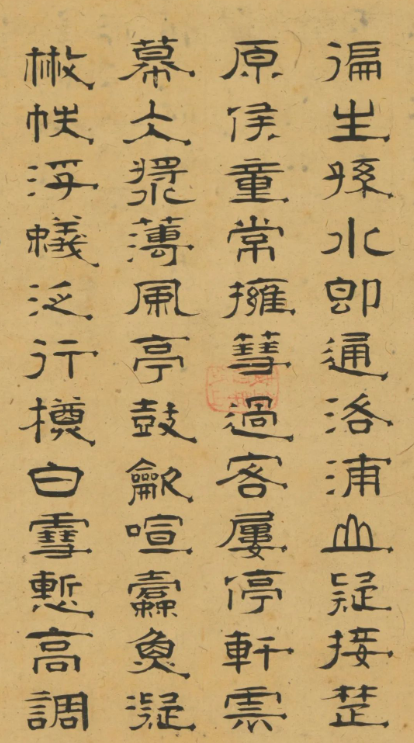 徧生水即通洛浦山疑接楚
原侯童常擁篲過客屢停軒雲
幕漿薄風亭鼓龡喧蠹魚凝
散帙浮蟻泛行樽白雪慙高調